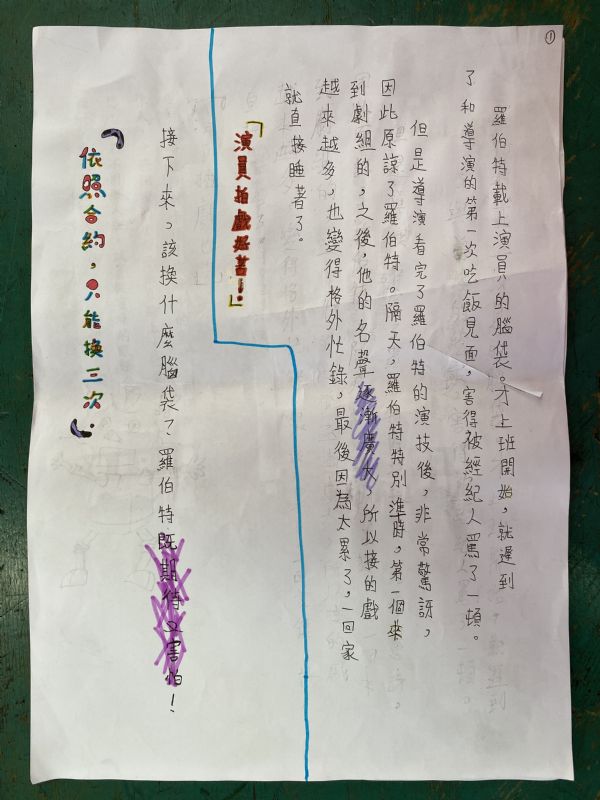 ①
羅伯特載上演員的腦袋。才上班開始，就遲到
了和導演的第一次吃飯見面，害得被經紀人罵了一頓。
但是導演看完了羅伯特的演技後，非常驚訝，
因此原諒了羅伯特。隔天，羅伯特特別準時，第一個來
到劇組的，之後，他的名聲逐漸廣大，所以接的戲
越來越多，也變得格外忙錄，最後因為太累了，一回家
就直接睡著了。
「演員拍戲好害！」
接下來，該換什麼腦袋？羅伯特既期待又害怕！
「依照合約，只能換三次.」